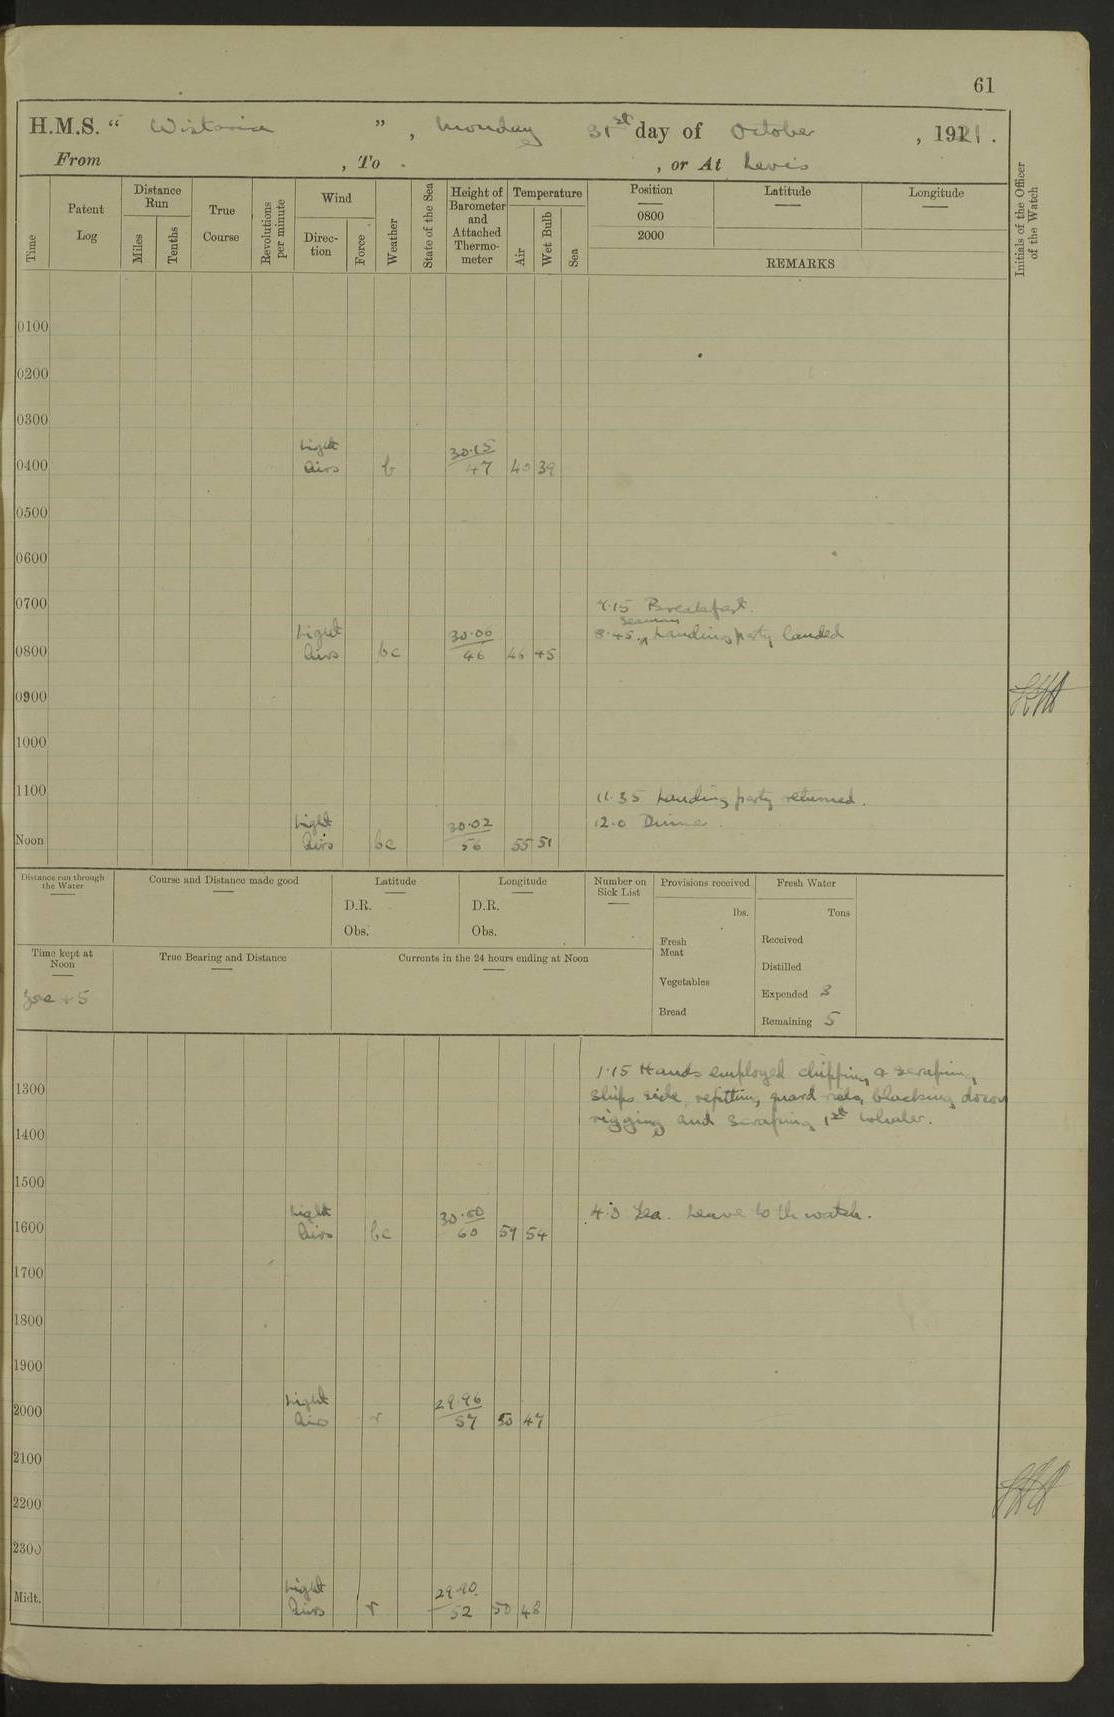 61
H.M.S. “ Wistaria ” , Monday 31st day of October , 1921.
From , To . , or At Levis
Time
Patent Log
Distance Run
Miles
Tenths
True Course
Revolutions per minute
Wind
Direction
Force
Weather
State of the Sea
Height of Barometer and Attached Thermometer
Temperature
Air
Wet Bulb
Sea
Position
0800
2000
Latitude
Longitude
REMARKS
Initials of the Officer of the Watch
0100
0200
0300
0400 Light Airs b 30.15 47 40 39
0500
0600
0700
7.15 Breakfast.
8.45. Seaman Landing party landed
0800 Light Airs bc 30.06 46 46 45
0900
1000
1100
11.35 Landing party returned.
12.0 Dinner.
Noon Light Airs bc 30.02 56 55 51
Distance run through the Water
Course and Distance made good
Latitude
D.R.
Obs.
Longitude
D.R.
Obs.
Number on Sick List
Provisions received
lbs.
Fresh Meat
Vegetables
Bread
Fresh Water
Tons
Received
Distilled
Expended 3
Remaining 5
Time kept at Noon
Zone + 5
True Bearing and Distance
Currents in the 24 hours ending at Noon
1.15 Hands employed chipping & scraping
ships side, refitting guard rails, blacking down
rigging and scraping 1st whaler.
1300
1400
1500
4.0 Tea. Leave to the watch.
1600 Light Airs bc 30.00 60 59 54
1700
1800
1900
2000 Light Airs r 29.96 57 50 47
2100
2200
2300
Midt. Light Airs r 29.90 52 50 48